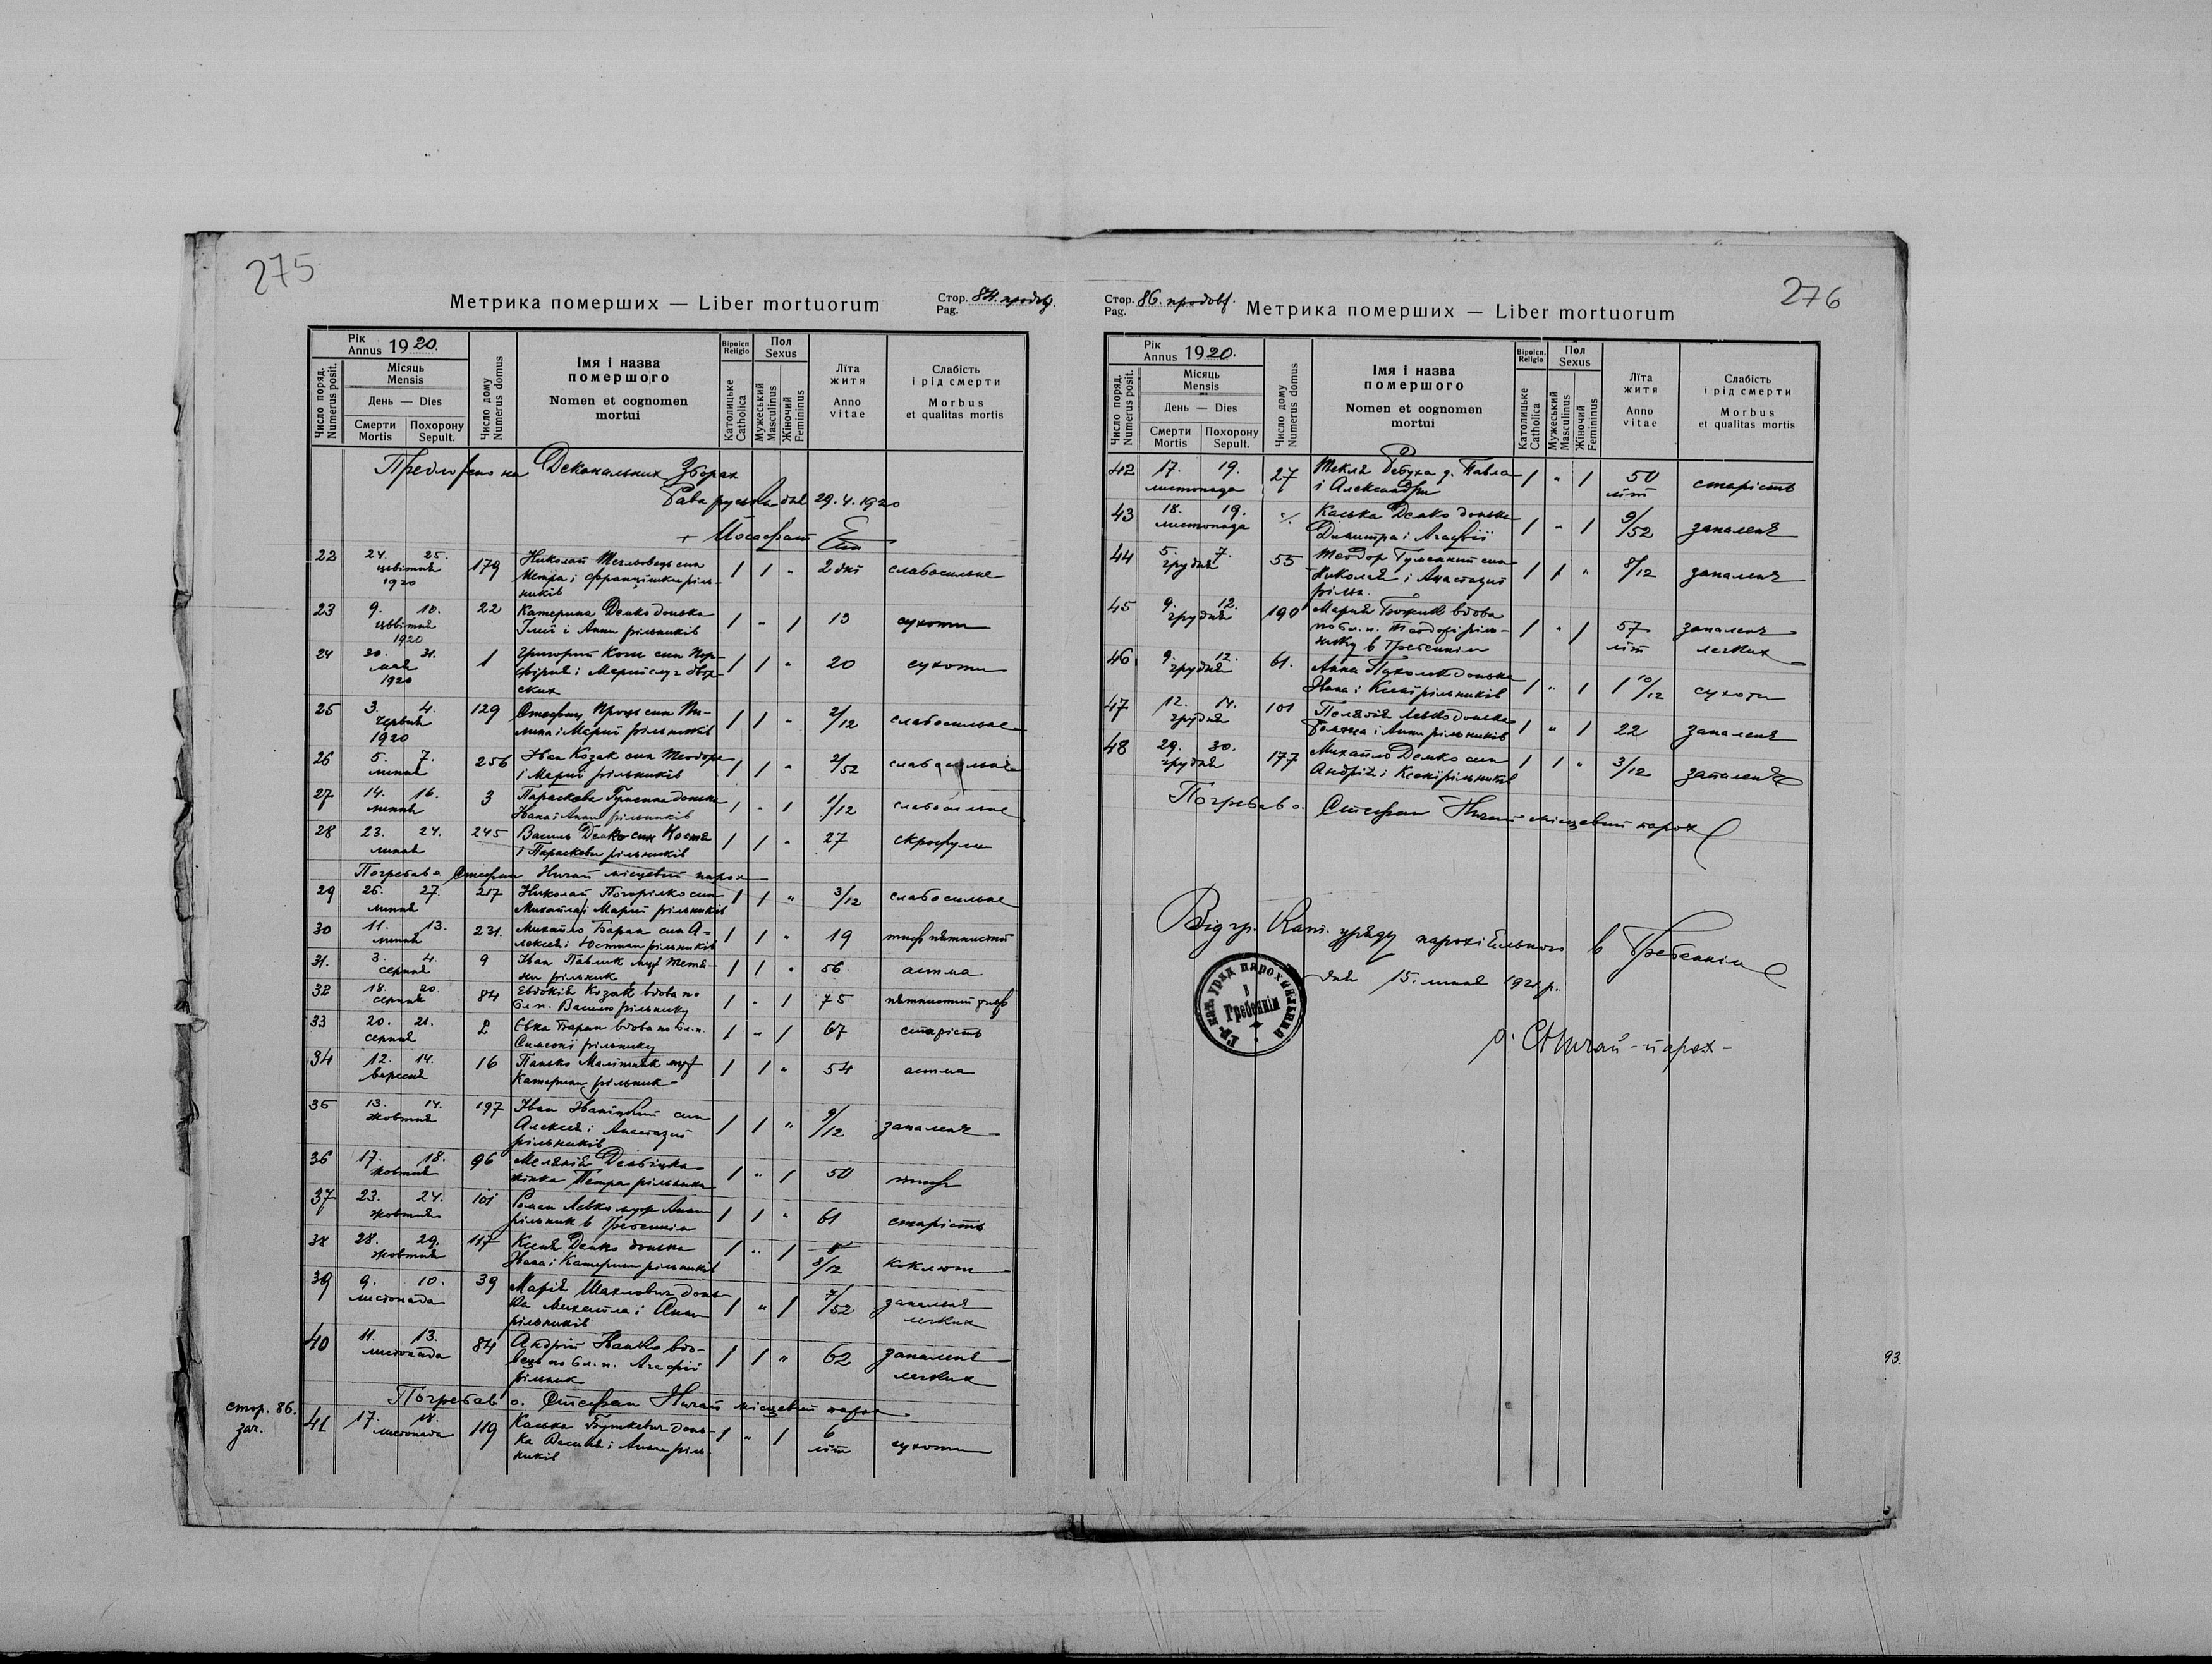 275
Метрика померших — Liber mortuorum
Стор. 84. продовж.
Pag.
Рік
Annus 1920.
Число поряд.
Numerus posit.
Місяць
Mensis
День — Dies
Смерти
Mortis
Похорону
Sepult.
Число дому
Numerus domus
Імя і назва
помершого
Nomen et cognomen
mortui
Віроісп.
Religio
Католицьке
Catholica
Пол
Sexus
Мужеський
Masculinus
Жіночий
Femininus
Літа
житя
Anno
vitae
Слабість
і рід смерти
Morbus
et qualitas mortis
Предложено на Деканальних Зборах
Рава руська дня 29.4.1920
+ Йосафат Еп
22 24. 25. цьвітня 1920 179 Николай
Петра і Францішки рільників 1 1 " 2 дні слабосильне
23 9. 10. цьвітня 1920 22 Катерина Демко донька
Ілиї і Анни рільників 1 " 1 13 сухоти
24 30. 31. мая 1920 1 Григорий син Пор-
фірия і Мариї двір-
ских 1 1 " 20 сухоти
25 3. 4. червня 1920 129 Стефан Проць син
і Мариї рільників 1 1 " 2/12 слабосильне
26 5. 7. липня 256 Іван Козак син Теодора
і Мариї рільників 1 1 " 2/52 слабосильне
27 14. 16. липня 3 Параскева донька
Івана і Анни рільників 1 " 1 1/12 слабосильне
28 23. 24. липня 245 Василь Демко син Костя
і Параскеви рільників 1 1 " 27 скрофули
Погребав о. Стефан Ничай місцевий парох
29 26. 27. липня 217 Николай Погорілко син
Михайла і Мариї рільників 1 1 " 3/12 слабосильне
30 11. 13. липня 231. Михайло Баран син А-
лексея і Юстини рільників 1 1 " 19 тиф пятнистий
31. 3. 4. серпня 9 Іван Павлик муж Тетя-
ни рільник 1 1 " 56 астма
32 18. 20. серпня 84 Евдокія Козак вдова по
бл. п. Василю рільнику 1 " 1 75 пятнистий тиф
33 20. 21. серпня 2 Євка Баран вдова по бл. п.
Симеоні рільнику 1 " 1 67 старість
34 12. 14. вересня 16 Панько муж
Катерини рільник 1 1 " 54 астма
35 13. 14. жовтня 197 Іван син
Алексея і Анастазиї
рільників 1 1 " 9/12 запалення
36 17. 18. жовтня 96 Меланія
жінка Петра рільника 1 " 1 50 тиф
37 23. 24. жовтня 101 Роман Левко муж Анни
рільник в Гребеннім 1 1 " 61 старість
38 28. 29. жовтня 117 Ксеня Демко донька
Івана і Катерини рільників 1 " 1 8/12 коклюш
39 9. 10. листопада 39 Марія Шахлович донь-
ка Михайла і Анни
рільників 1 " 1 7/52 запаленя
легких
40 11. 13. листопада 84 Андрій Іванько вдо-
вець по бл. п. Агафії
рільник 1 1 " 62 запаленя
легких
Погребав о. Стефан Ничай місцевий парох
стор. 86.
зач.
41 17. 18. листопада 119 Каська Буткевич донь-
ка Василя і Анни ріль-
ників 1 " 1 6 літ сухоти
276
Стор. 86. продовж.
Pag.
Метрика померших — Liber mortuorum
Рік
Annus 1920.
Число поряд.
Numerus posit.
Місяць
Mensis
День — Dies
Смерти
Mortis
Похорону
Sepult.
Число дому
Numerus domus
Імя і назва
помершого
Nomen et cognomen
mortui
Віроісп.
Religio
Католицьке
Catholica
Пол
Sexus
Мужеський
Masculinus
Жіночий
Femininus
Літа
житя
Anno
vitae
Слабість
і рід смерти
Morbus
et qualitas mortis
42 17. 19. листопада 27 Текля Ребуха д. Павла
і Александри 1 " 1 50 літ старість
43 18. 19. листопада Каська Демко донька
Димитра і Агафії 1 " 1 9/52 запаленя
44 5. 7. грудня 55 Теодор син
Николая і Анастазиї
рільн. 1 1 " 8/12 запаленя
45 9. 12. грудня 190 Мария Божик вдова
по бл. п. Теодорі ріль-
нику в Гребеннім 1 " 1 57 літ запаленя
легких
46 9. 12. грудня 61. Анна Пахолок донька
Івана і Ксені рільників 1 " 1 1 10/12 сухоти
47 12. 14. грудня 101 Пелагія Левко донька
Романа і Анни рільників 1 " 1 22 запаленя
48 29. 30. грудня 177 Михайло Демко син
Андрія і Ксенії рільників 1 1 " 3/12 запаленя
Погребав о. Стефан Ничай місцевий парох
Від гр. кат. уряду парохіяльного в Гребеннім
дня 15. липня 1921 р.
Гр. кат. уряд парохіяльний
в
Гребеннім
о. Ст Ничай - парох -
93.